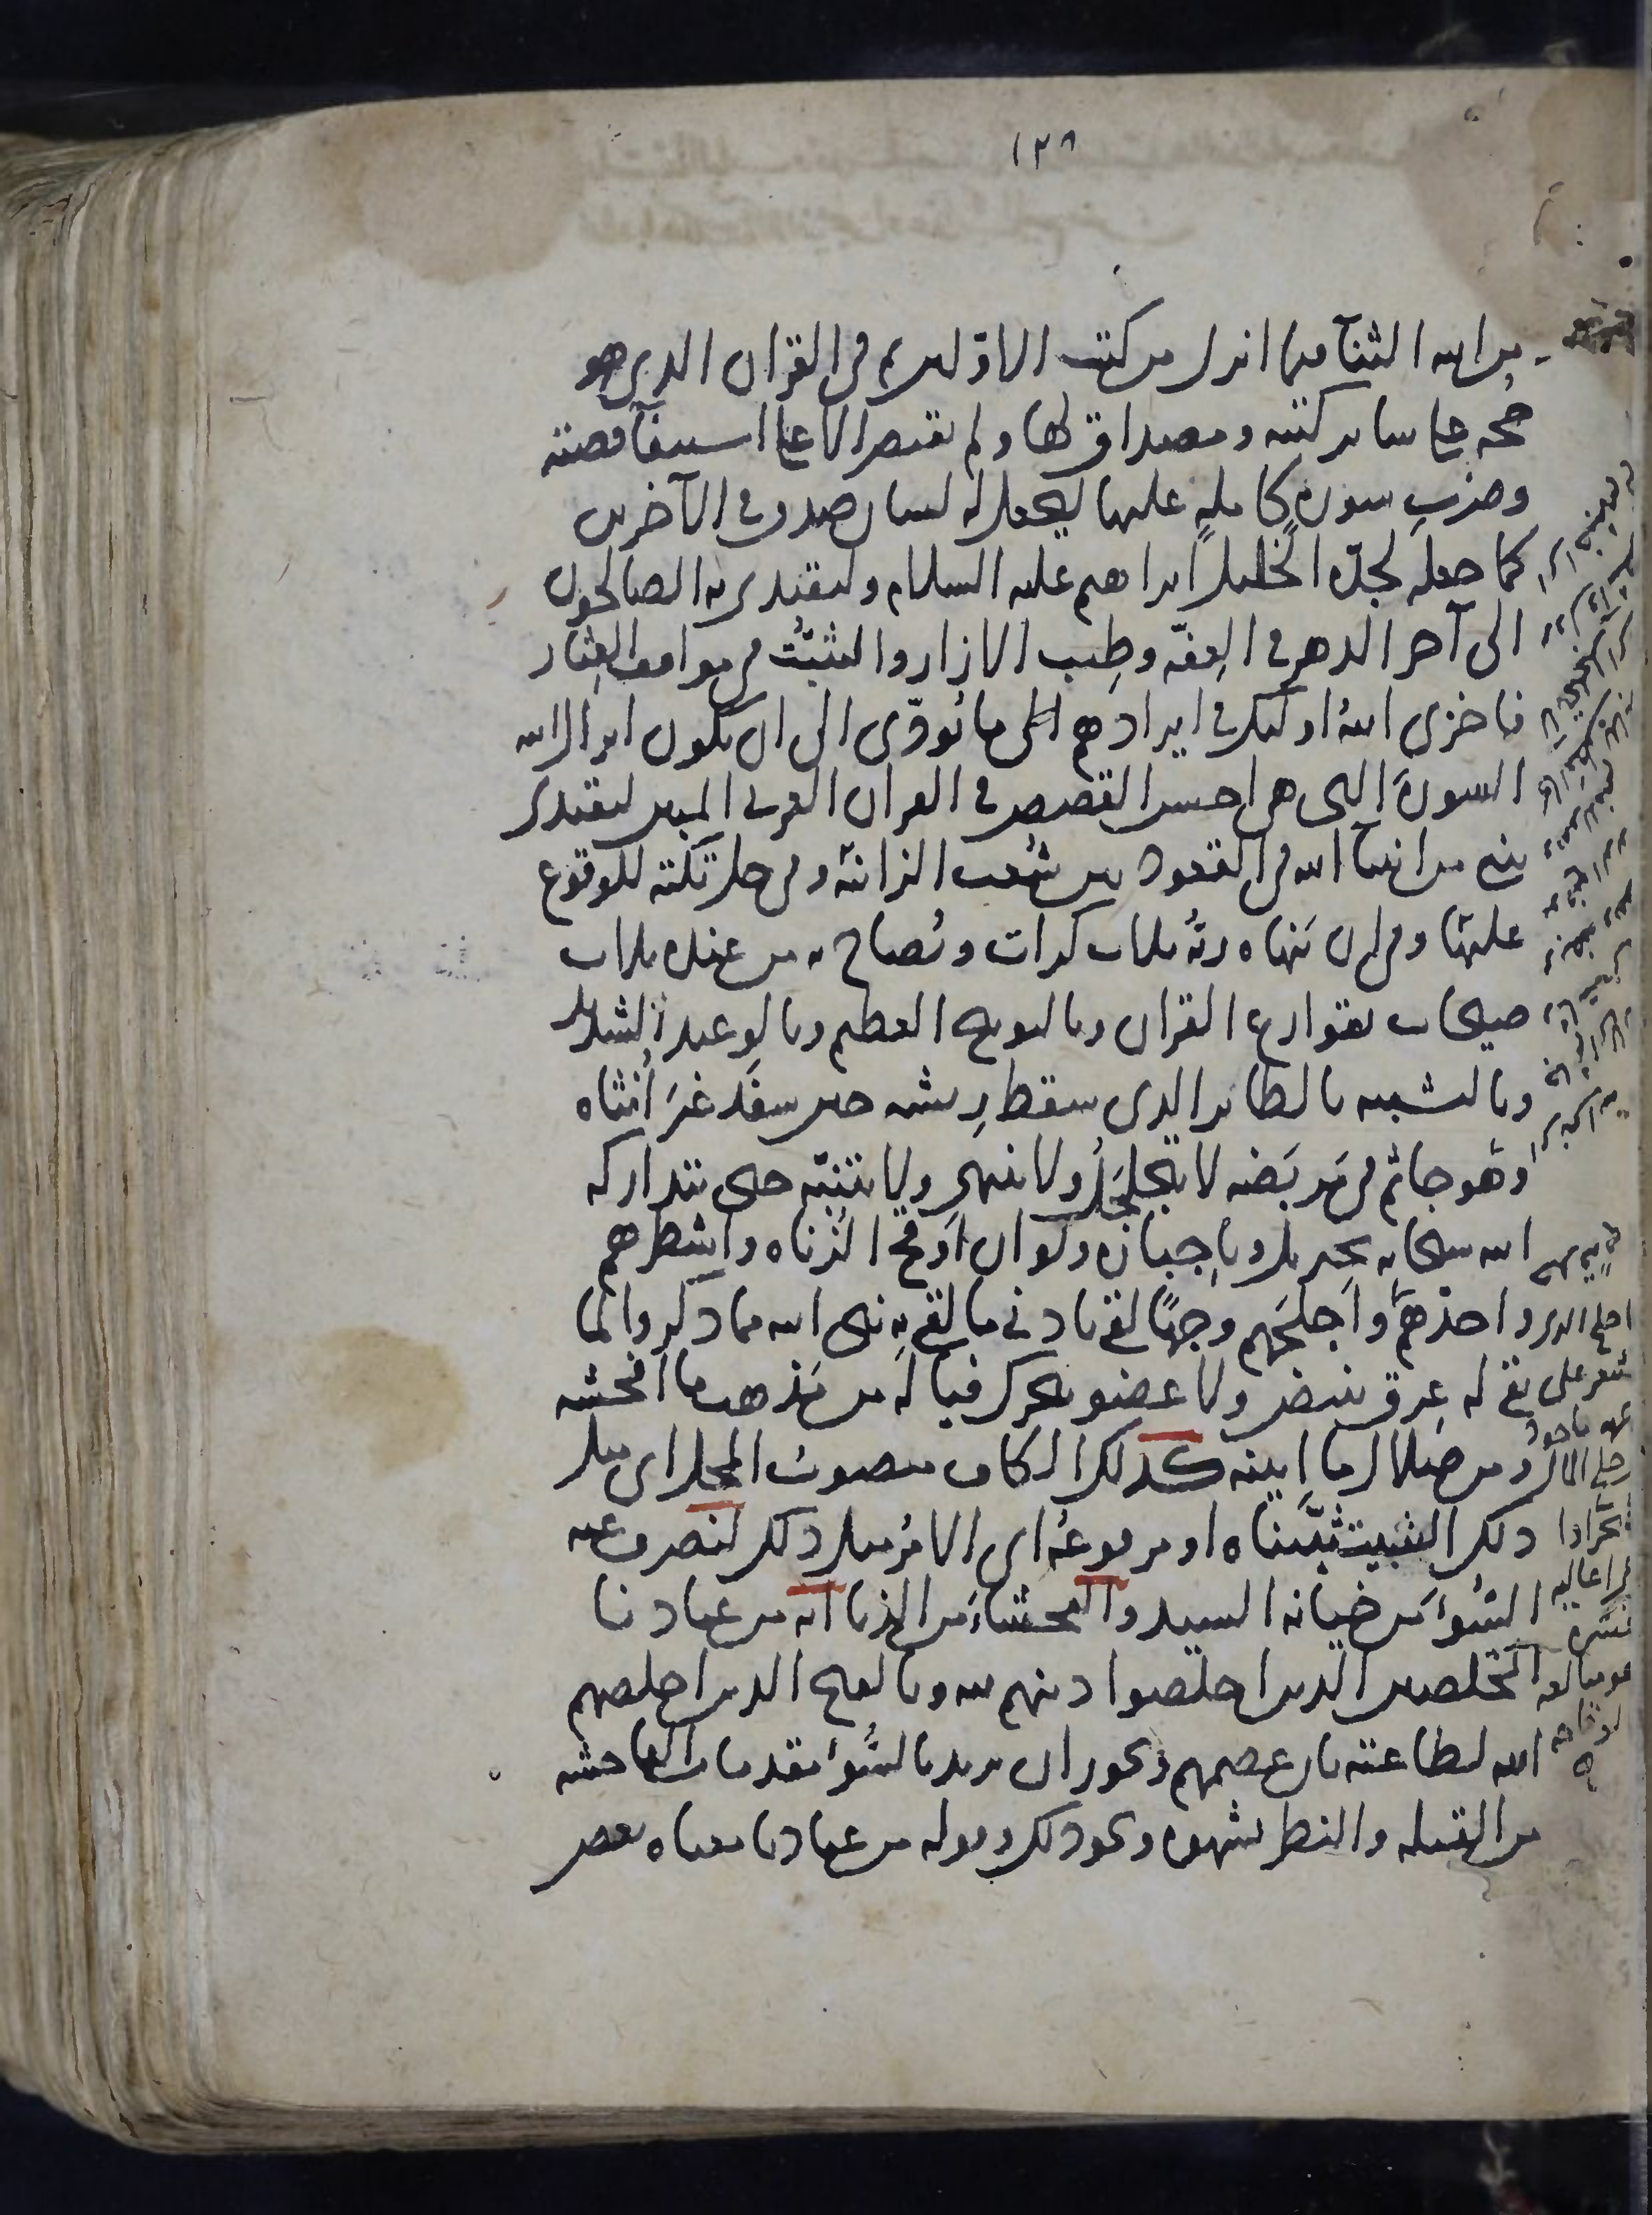 ١٢٨
من الله الثنا فيما انزل من كتب الاولين ثم في القران الذي هو
حجة على ساير كتبه ومصداق لها ولم يقتصر الا على استيفآ قصته
وضرب سورة كاملة عليها ليجعل له لسان صدق في الآخرين
كما جعله لجده الخليل ابراهيم عليه السلام وليقتدي به الصالحون
الى آخر الدهر في العفة وطيب الازار والتثبت في مواقف العثار
فاخزى الله اولئك في ايرادهم الى ما يؤدى الى ان يكون انزال الله
السورة التي هي احسن القصص في القران العربي المبين ليقتدى
بنبي من انبيا الله في القعود بين شعب الزانية وفي حل تكته للوقوع
عليها وفي ان ينهاه ربه ثلاث كرات ويصاح به من عنده ثلاث
صيحات بقوارع القران وبالتوبيخ العظيم وبالوعيد الشديد
وبالتشبيه بالطاير الذي سقط ريشه حين سفد غير انثاه
وهو جاثم في مربضه لا يتحلحل ولا ينتهي ولا يتنبه حتى يتداركه
الله سبحانه بجبريل وباجباره ولو ان اوقح الزناه واشطرهم
واحدهم واجلحهم وجها لقي بادنى ما لقي به نبي الله مما ذكروا لما
بقي له عرق ينبض ولا عضو يتحرك فيا له من مذهب ما افحشه
ومن ضلال ما ابينه كذلك الكاف منصوب المحل اى مثل
ذلك التثبيت ثبتناه او مرفوعه اى الامر مثل ذلك لنصرف عنه
السوء من خيانة السيد والفحشاء من الزنا انه من عبادنا
المخلصين الذين اخلصوا دينهم لله وبالفتح الذين اخلصهم
الله لطاعته بان عصمهم ويجوز ان يريد بالسوء مقدمات الفاحشه
من القبله والنظر بشهوه ونحو ذلك وقوله من عبادنا معناه بعض